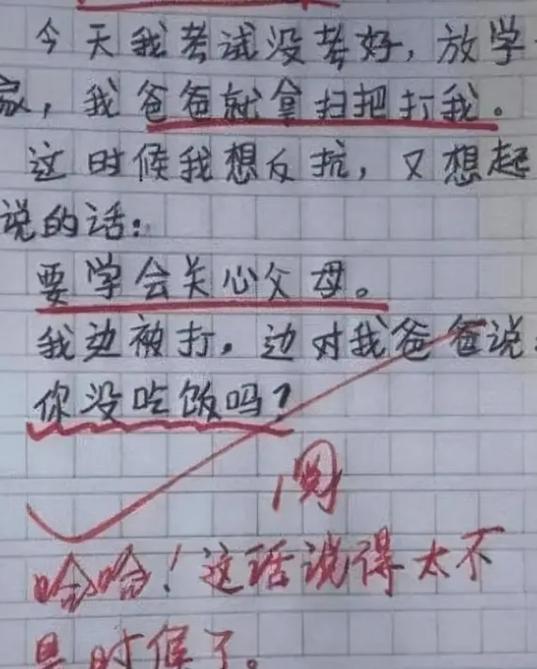 今天我考试没考好，放学
家，我爸爸就拿扫把打我。
这时候我想反抗，又想起
说的话：
要学会关心父母。
我边被打，边对我爸爸说：
你没吃饭吗？
阅
哈哈！这话说得太不
是时候了。